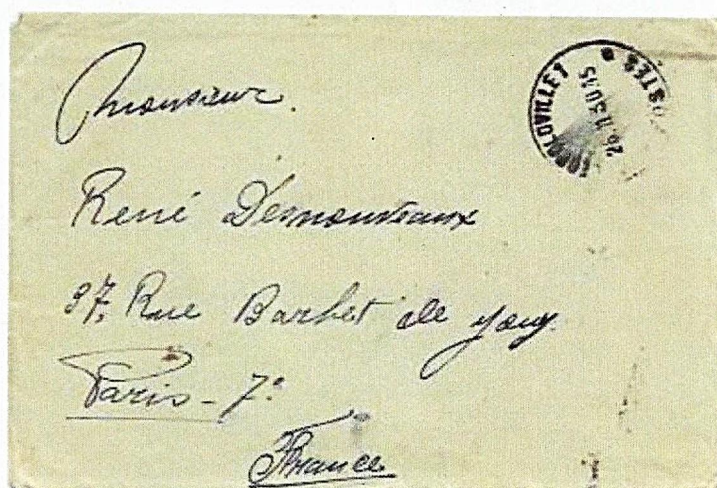 Monsieur.
René Desmouveaux
37, Rue Barbet de Jouy.
Paris - 7e
France
26.11.50.15